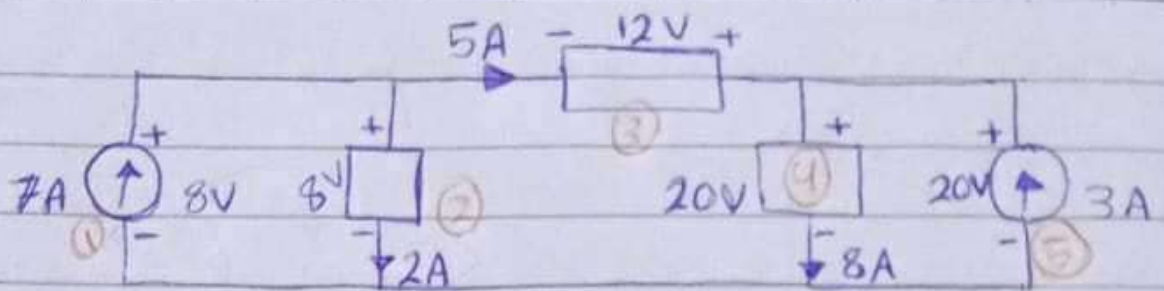 5A - 12V +
③
+ + + +
7A 8V 8V ② 20V ④ 20V 3A
① - - 2A - 8A - ⑤